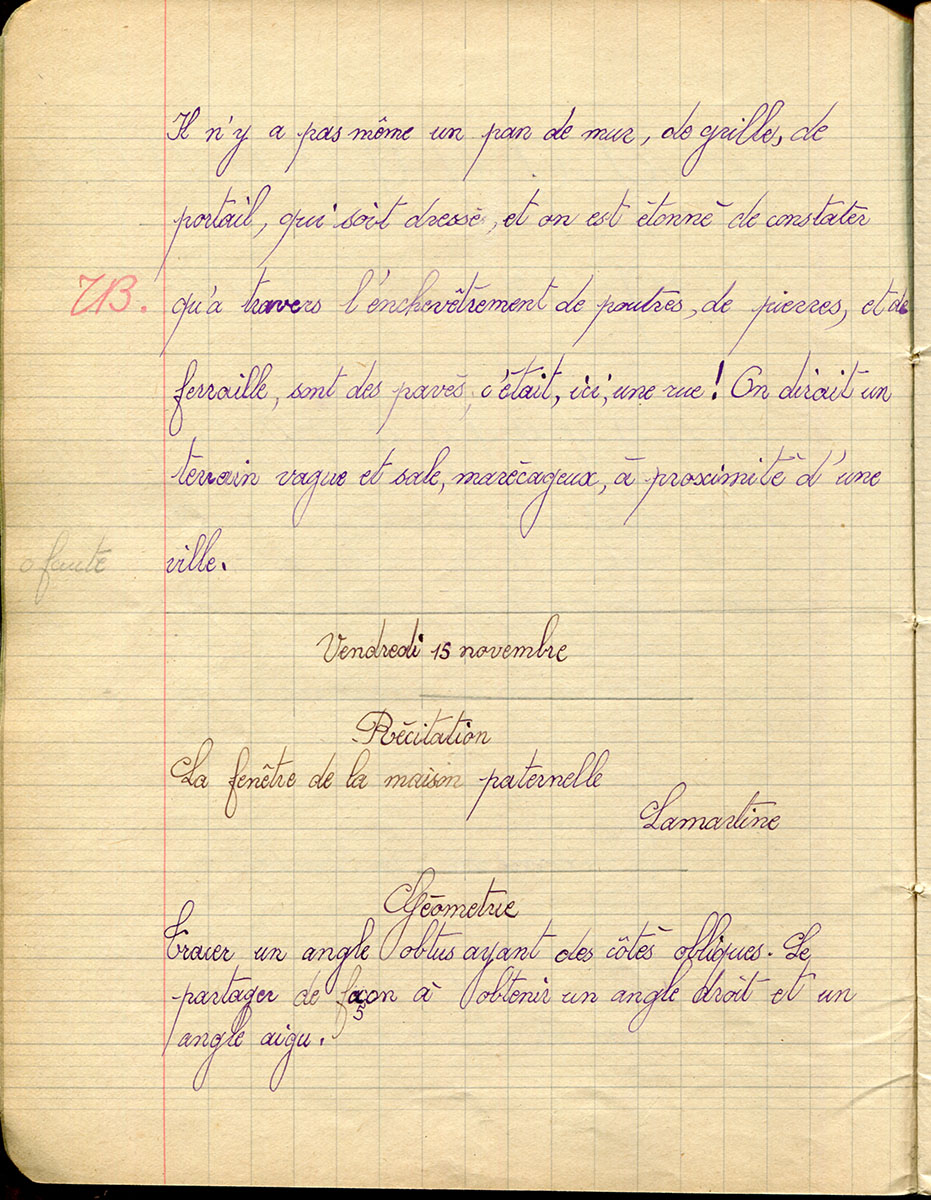 Il n'y a pas même un pan de mur, de grille, de
portail, qui soit dressé, et on est étonné de constater
TB. qu'à travers l'enchevêtrement de poutres, de pierres, et de
ferraille, sont des pavés, c'était, ici, une rue! On dirait un
terrain vague et sale, marécageux, à proximité d'une
0 faute ville.
Vendredi 15 novembre
Récitation
La fenêtre de la maison paternelle
Lamartine
Géometrie
Tracer un angle obtus ayant des côtés obliques. Le
partager de façon à obtenir un angle droit et un
angle aigu.